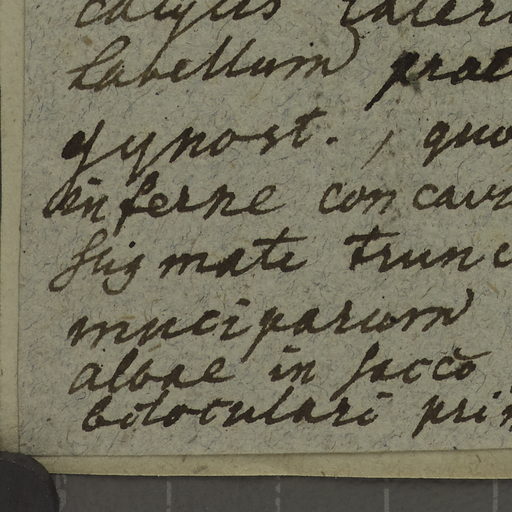 calycis lateri
Labellum prae
gynost., quo
inferne concava
stigmate trunc
muciparum
albae in sacco
bilocular̄i prim